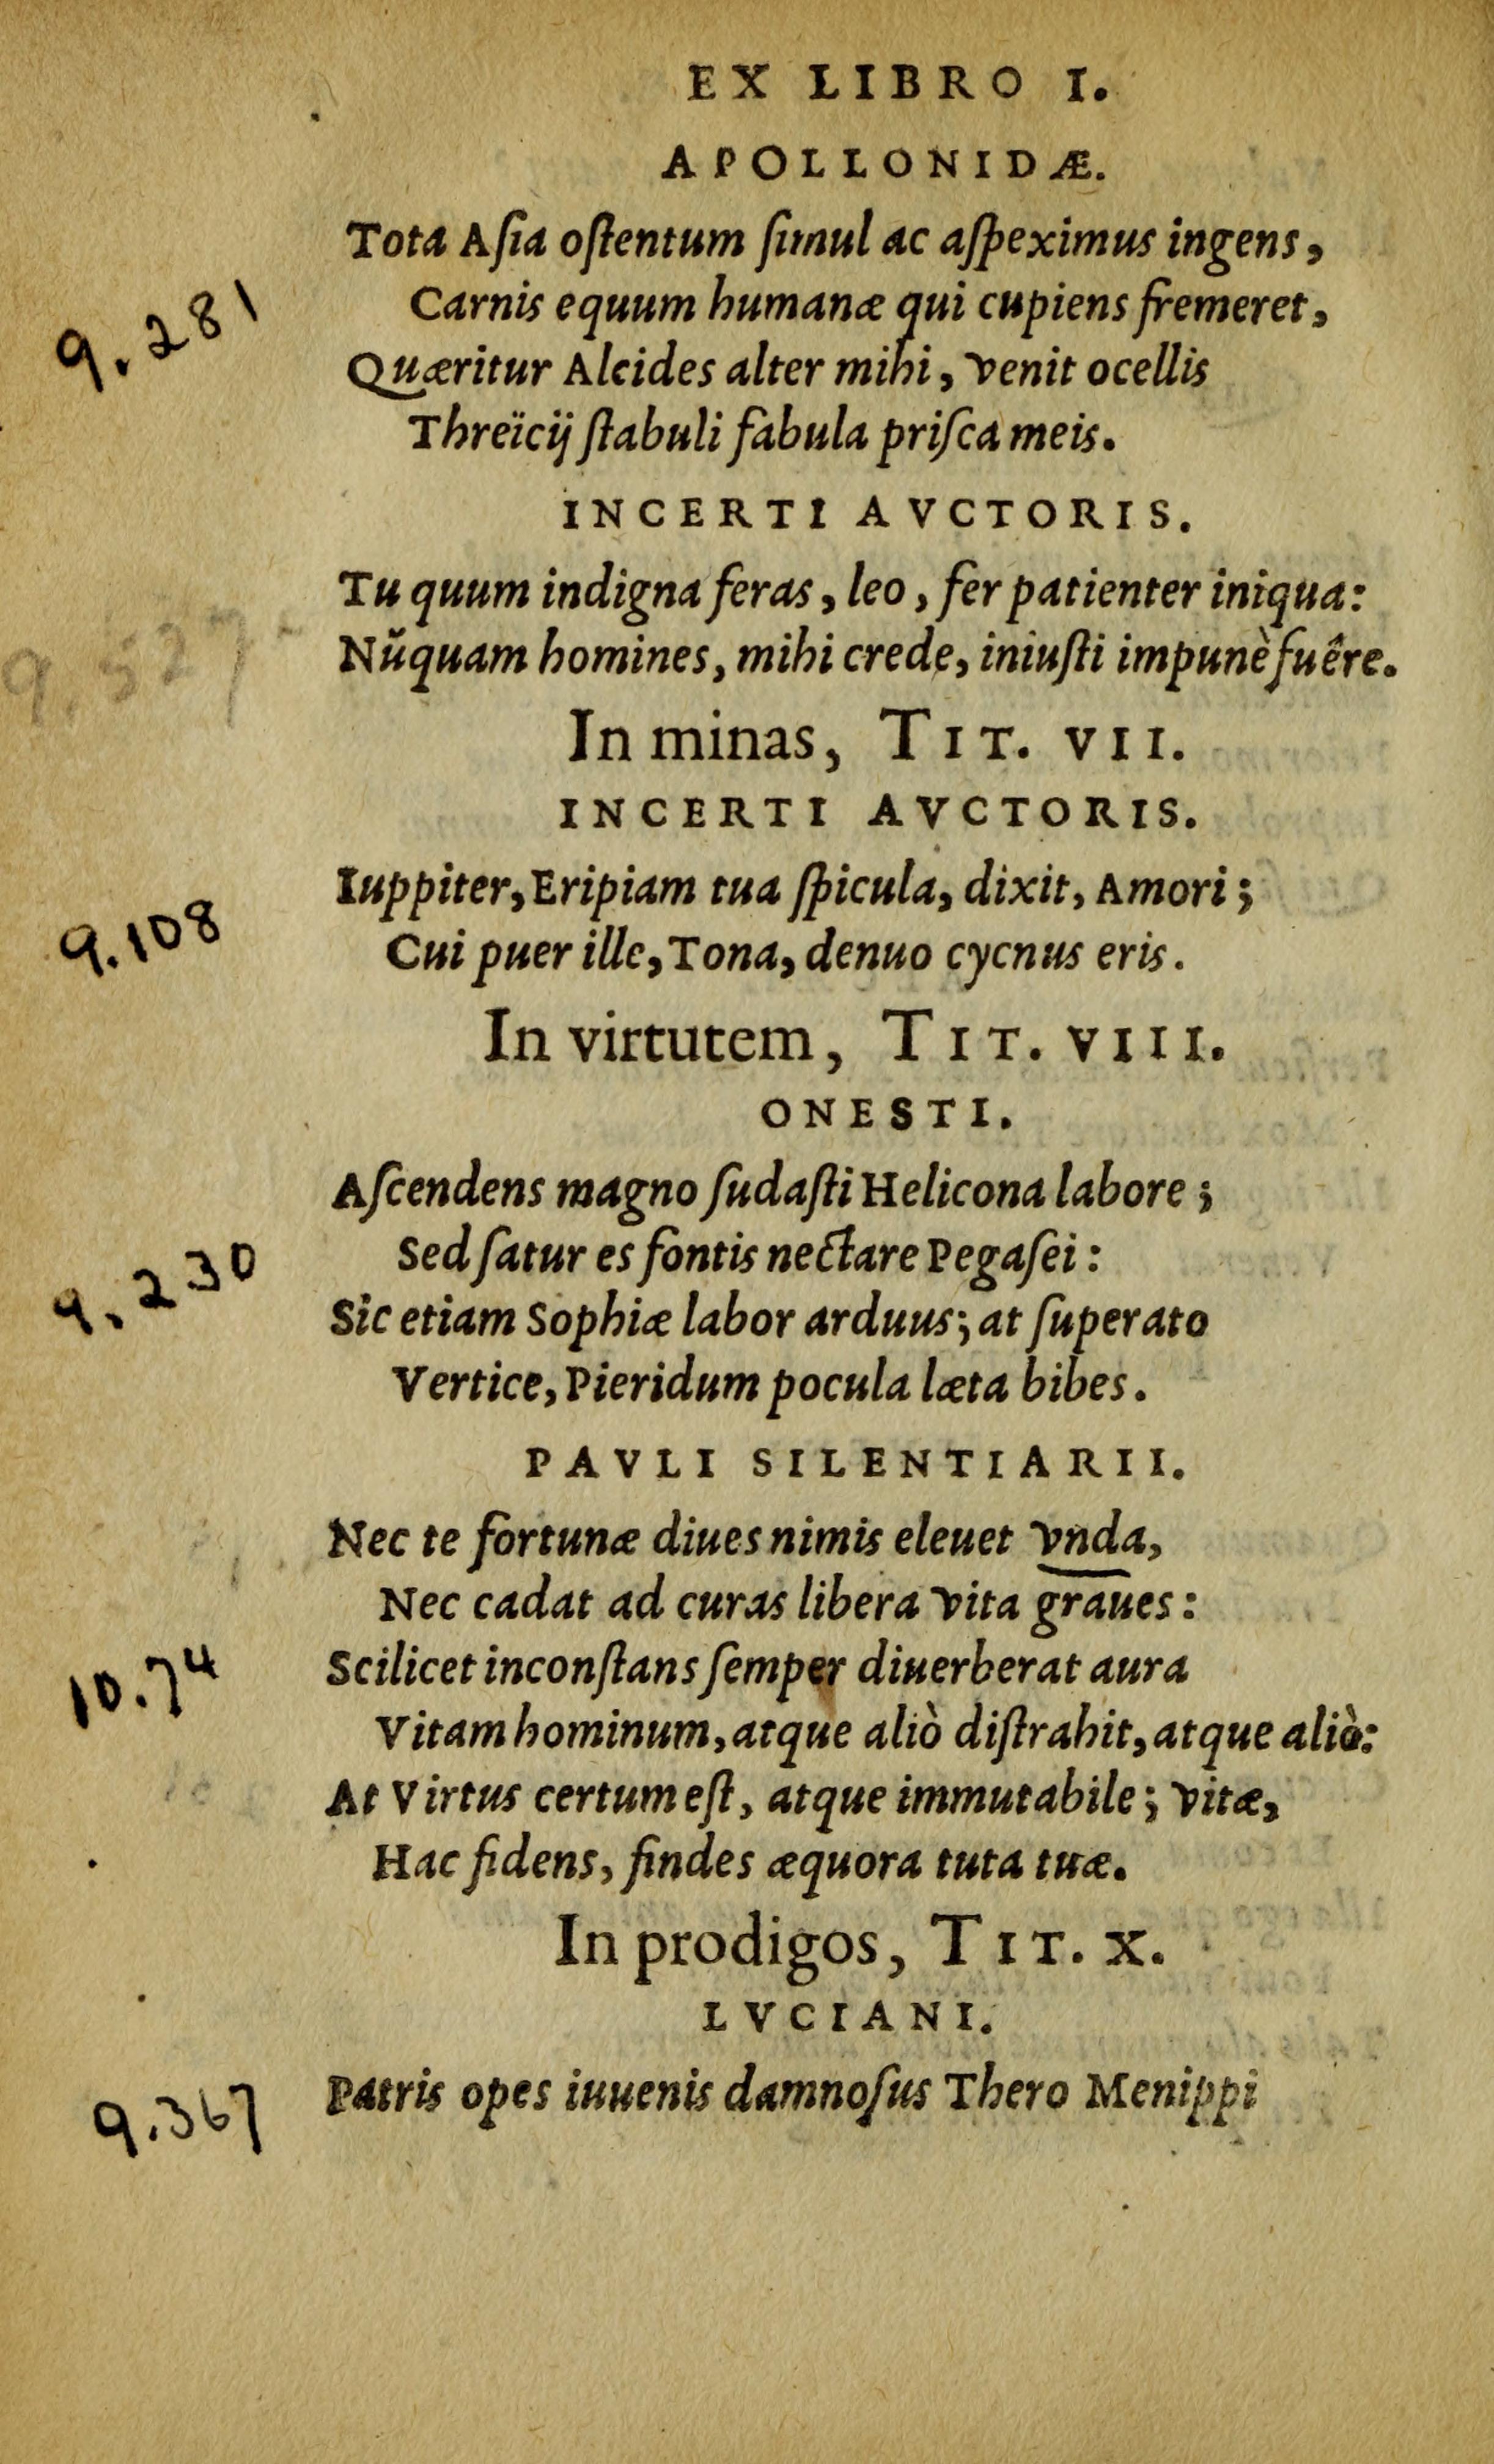 EX LIBRO I.
APOLLONIDÆ.
Tota Aſia oſtentum ſimul ac aſpeximus ingens,
9.281
Carnis equum humanæ qui cupiens fremeret,
Quæritur Alcides alter mihi, venit ocellis
Threïcij ſtabuli fabula priſca meis.
INCERTI AVCTORIS.
Tu quum indigna feras, leo, fer patienter iniqua:
9.527
Nŭquam homines, mihi crede, iniuſti impunè fuêre.
In minas, TIT. VII.
INCERTI AVCTORIS.
Iuppiter, Eripiam tua ſpicula, dixit, Amori;
9.108
Cui puer ille, Tona, denuo cycnus eris.
In virtutem, TIT. VIII.
ONESTI.
Aſcendens magno ſudaſti Helicona labore;
Sed ſatur es fontis nectare Pegaſei:
9.230
Sic etiam Sophiæ labor arduus; at ſuperato
Vertice, Pieridum pocula læta bibes.
PAVLI SILENTIARII.
Nec te fortunæ diues nimis eleuet vnda,
Nec cadat ad curas libera vita graues:
10.74
Scilicet inconſtans ſemper diuerberat aura
Vitam hominum, atque aliò diſtrahit, atque aliò:
At Virtus certum eſt, atque immutabile; vitæ,
Hac fidens, findes æquora tuta tuæ.
In prodigos, TIT. X.
LVCIANI.
9.367
Patris opes iuuenis damnoſus Thero Menippi